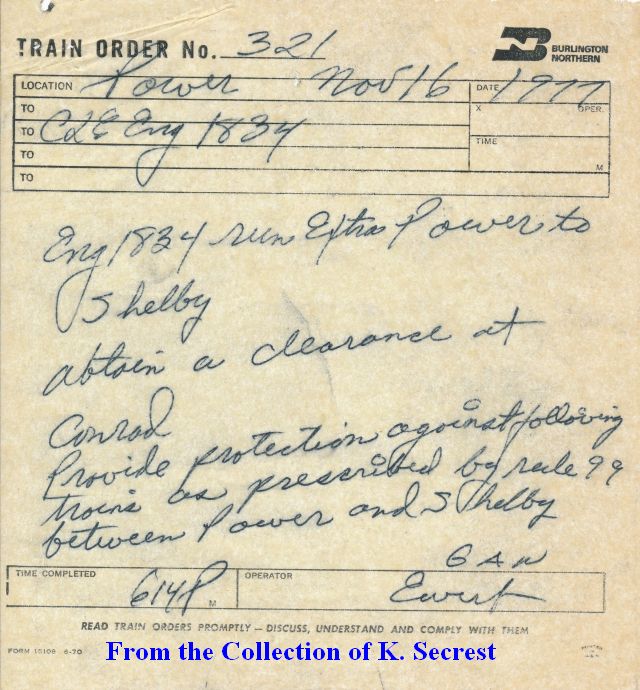 TRAIN ORDER No. 321
BURLINGTON
NORTHERN
LOCATION Power Nov 16 DATE 1977
TO X OPER.
TO C&E Eng 1834
TO TIME
TO M
Eng 1834 run Extra Power to
Shelby
obtain a clearance at
Conrad
Provide protection against following
trains as prescribed by rule 99
between Power and Shelby
GAN
TIME COMPLETED 614P M OPERATOR
READ TRAIN ORDERS PROMPTLY — DISCUSS, UNDERSTAND AND COMPLY WITH THEM
FORM 15109 6-70
From the Collection of K. Secrest